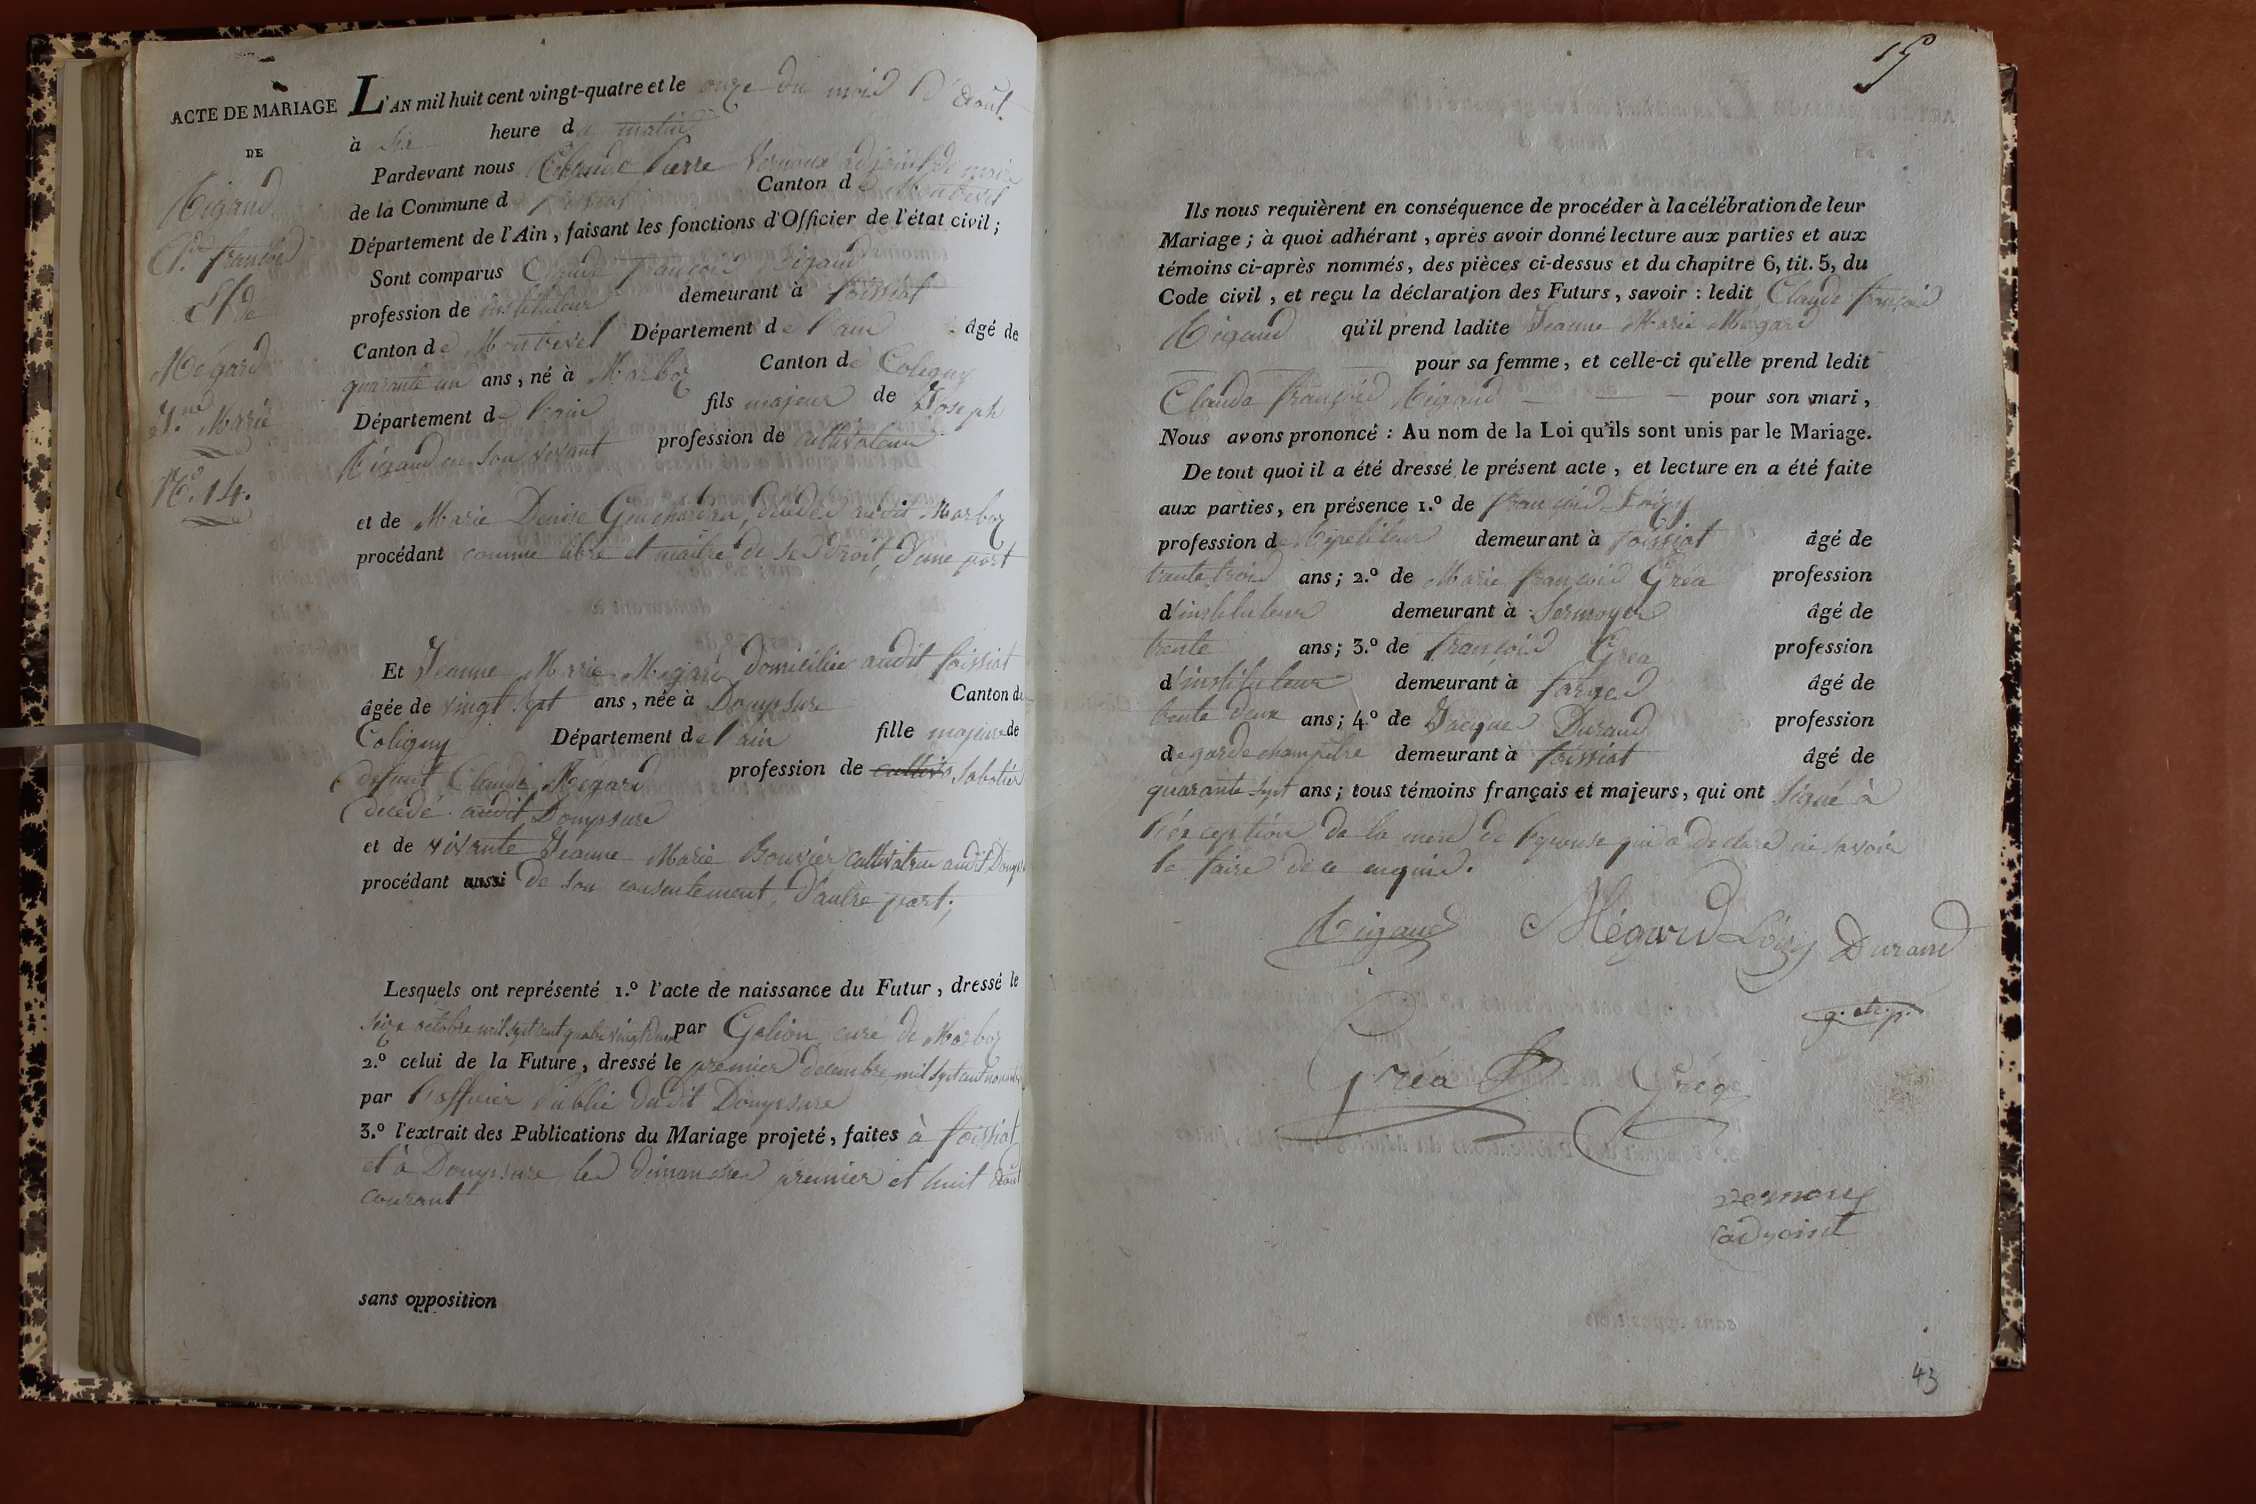 ACTE DE MARIAGE
DE
Rigaud
Cl.de françois
Et de
Mégard
J.ne Marie
N.o 14.
L'AN mil huit cent vingt-quatre et le onze du mois d'Août
à six heure du matin
Pardevant nous Claude Pierre Vernoux adjoint du maire
de la Commune de foissiat Canton de Montrevel
Département de l'Ain, faisant les fonctions d'Officier de l'état civil;
Sont comparus Claude françois Rigaud
profession de instituteur demeurant à foissiat
Canton de Montrevel Département de l'ain âgé de
quarante un ans, né à Marboz Canton de Coligny
Département de l'ain fils majeur de Joseph
Rigaud en son vivant profession de cultivateur
et de Marie Denise décédés audit Marboz
procédant comme libre et maitre de ses droits, d'une part
Et Jeanne Marie Megard domiciliée audit foissiat
âgée de vingt sept ans, née à Dompsure Canton de
Coligny Département de l'ain fille majeure de
défunt Claude Mégard profession de cultiv. Sabotier
décédé audit Dompsure
et de vivante Jeanne Marie Bouvier cultivatrice audit Domps
procédant aussi de son consentement, d'autre part;
Lesquels ont représenté 1.º l'acte de naissance du Futur, dressé le
seize octobre mil sept cent quatre vingt deux par Golion curé de Marboz
2.º celui de la Future, dressé le premier décembre mil sept cent
par l'officier Public dudit Dompsure
3.º l'extrait des Publications du Mariage projeté, faites à foissiat
et à Dompsure les dimanches premier et huit Août
courant
sans opposition
15
Ils nous requièrent en conséquence de procéder à la célébration de leur
Mariage; à quoi adhérant, après avoir donné lecture aux parties et aux
témoins ci-après nommés, des pièces ci-dessus et du chapitre 6, tit. 5, du
Code civil, et reçu la déclaration des Futurs, savoir: ledit Claude françois
Rigaud qu'il prend ladite Jeanne Marie Mégard
pour sa femme, et celle-ci qu'elle prend ledit
Claude françois Rigaud pour son mari,
Nous avons prononcé: Au nom de la Loi qu'ils sont unis par le Mariage.
De tout quoi il a été dressé le présent acte, et lecture en a été faite
aux parties, en présence 1.º de françois Loisy
profession de Répétiteur demeurant à foissiat âgé de
trente trois ans; 2.º de Marie françois Gréa profession
d'instituteur demeurant à Sermoyer âgé de
trente ans; 3.º de françois Gréa profession
d'instituteur demeurant à farges âgé de
trente deux ans; 4.º de Jacques Durand profession
de garde champêtre demeurant à foissiat âgé de
quarante sept ans; tous témoins français et majeurs, qui ont signé à
l'éxception de la mere de l'épouse qui a déclaré ne savoir
le faire de ce enquise.
Rigaud Mégard Loisy Durand
g. ch. p.
Gréa Gréa
Vernoux
adjoint
43